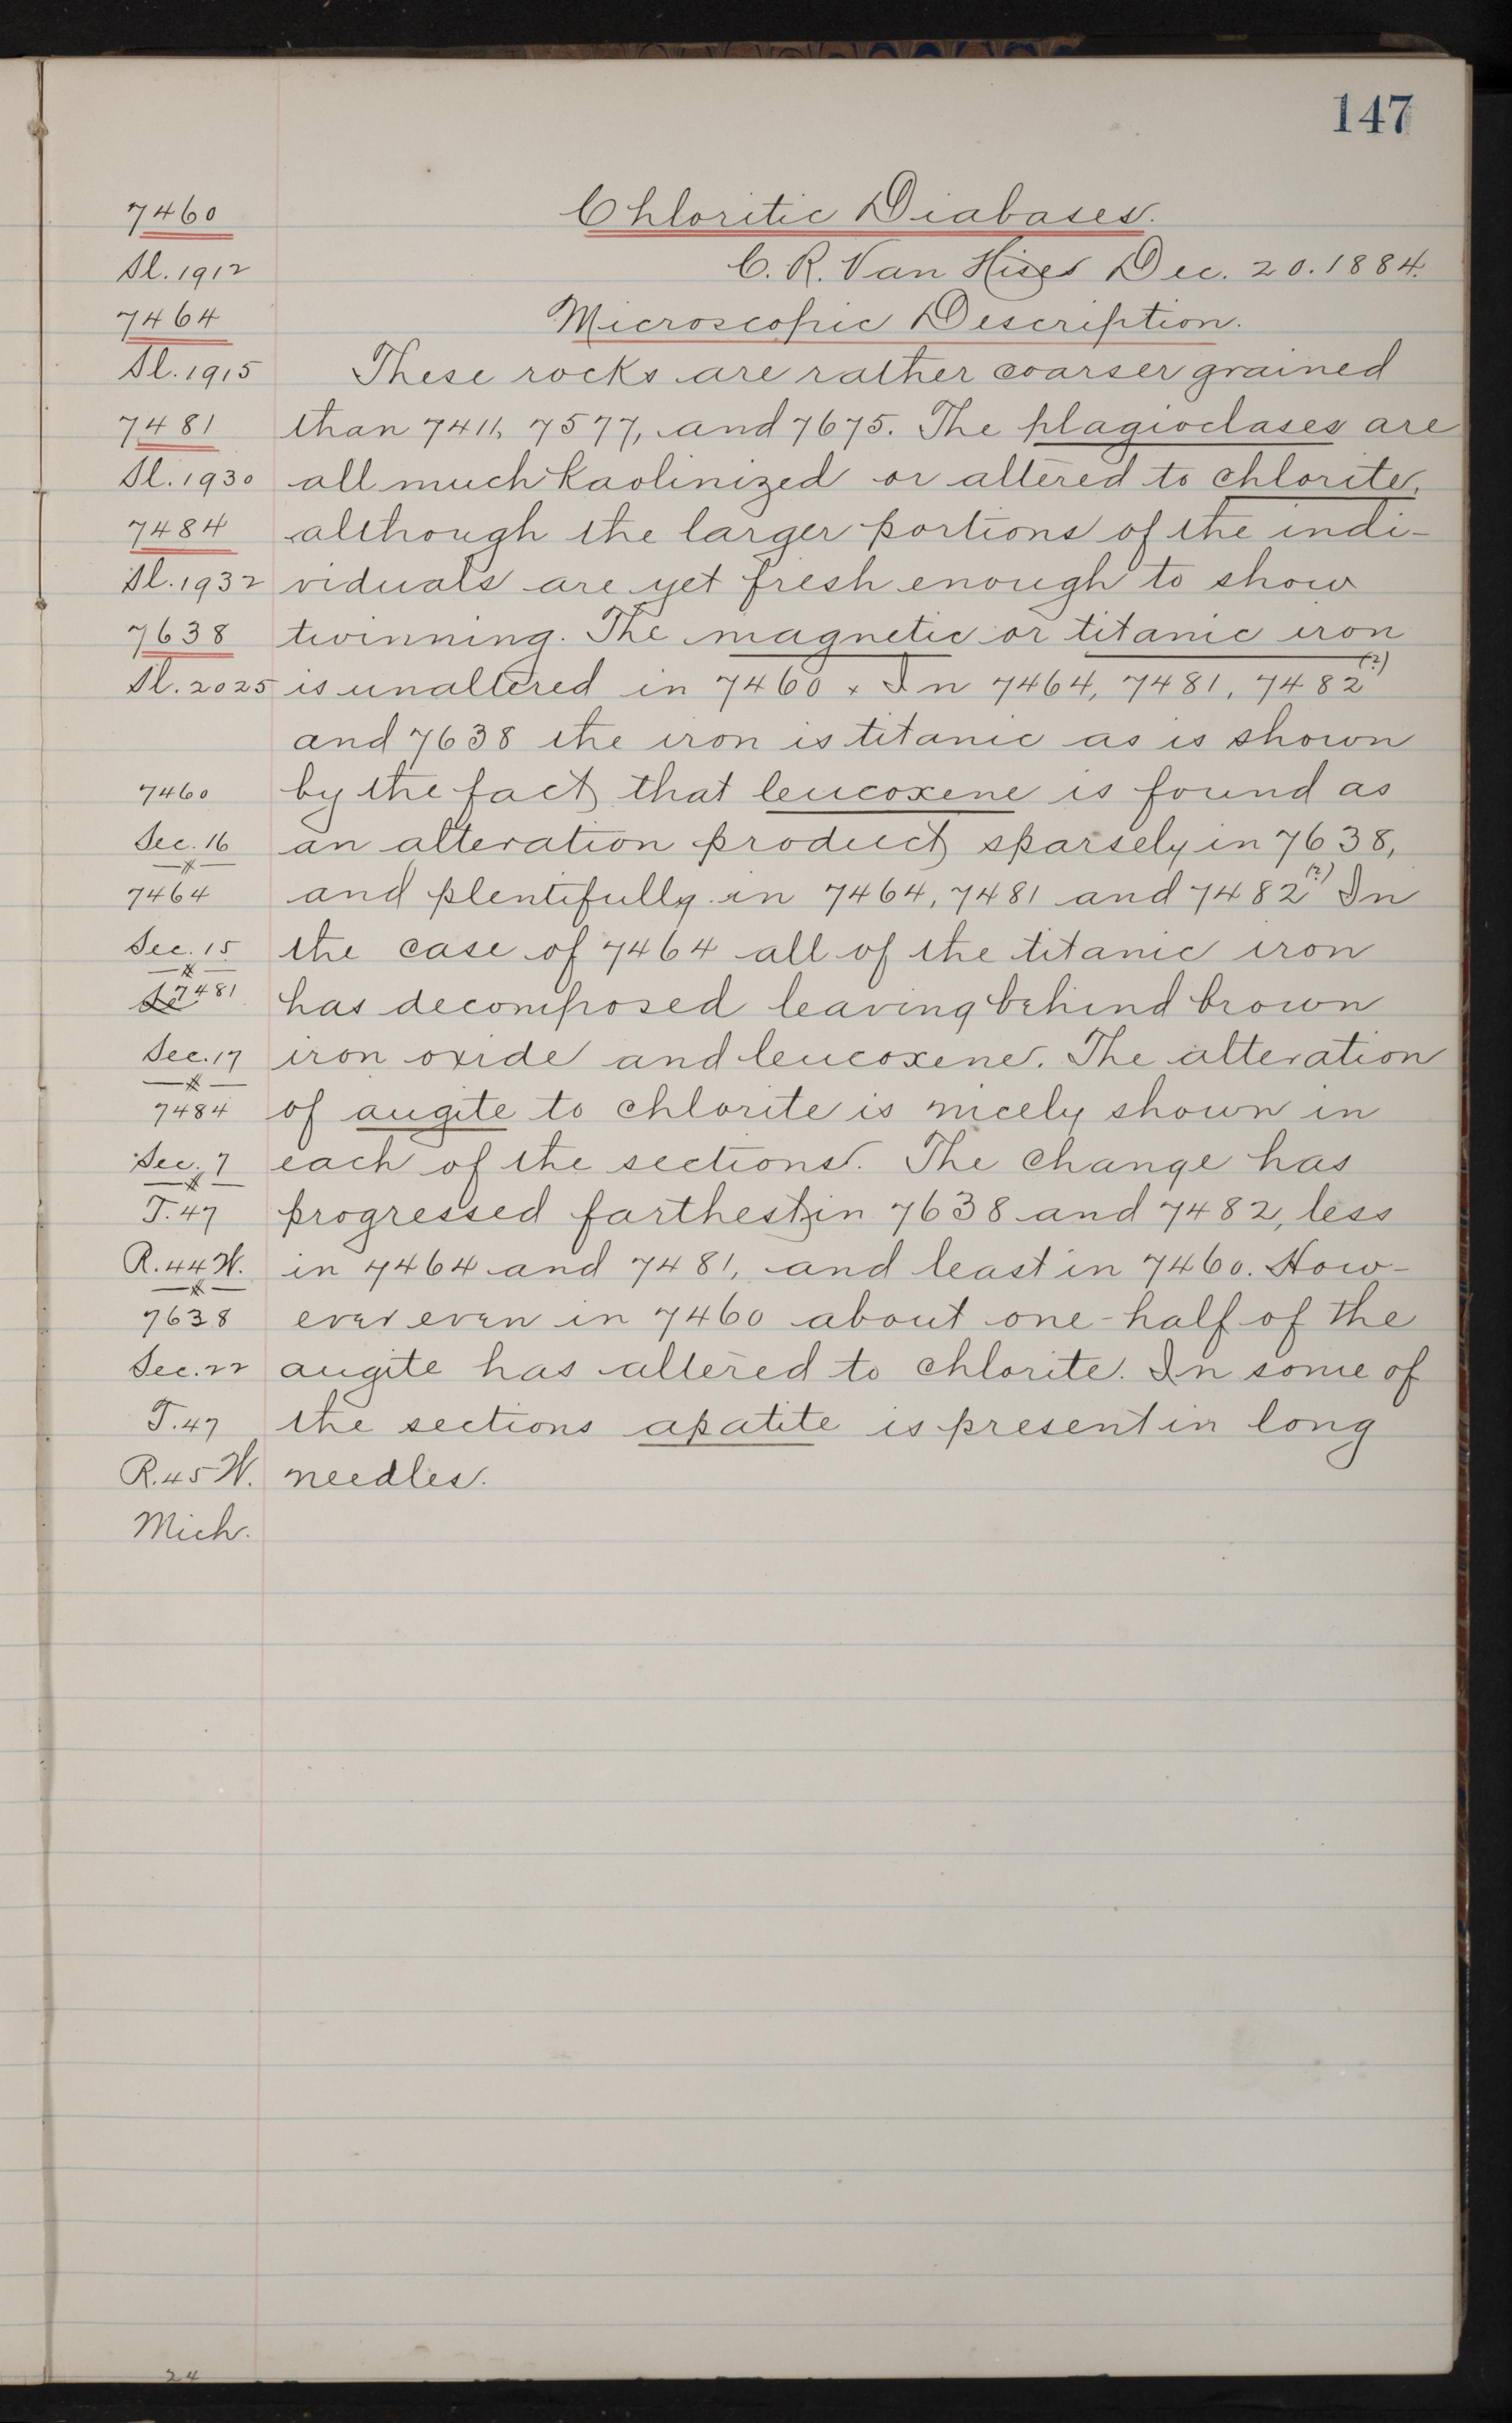 147
7460 Chloritic Diabases.
Sl. 1912 C. R. Van Hises Dec. 20. 1884.
7464 Microscopic Description.
Sl. 1915 These rocks are rather coarser grained
7481 than 7411, 7577, and 7675. The plagioclases are
Sl. 1930 all much kaolinized or altered to chlorite,
7484 although the larger portions of the indi-
Sl. 1932 viduals are yet fresh enough to show
7638 twinning. The magnetic or titanic iron
Sl. 2025 is unaltered in 7460. In 7464, 7481, 7482 (?)
and 7638 the iron is titanic as is shown
7460 by the fact that leucoxene is found as
Sec. 16 an alteration product, sparsely in 7638,
7464 and plentifully in 7464, 7481 and 7482 (?) In
Sec. 15 the case of 7464 all of the titanic iron
7481 has decomposed leaving behind brown
Sec. 17 iron oxide and leucoxene. The alteration
7484 of augite to chlorite is nicely shown in
Sec. 7 each of the sections. The change has
T. 47 progressed farthest in 7638 and 7482, less
R. 44 W. in 7464 and 7481, and least in 7460. How-
7638 ever even in 7460 about one-half of the
Sec. 22 augite has altered to chlorite. In some of
T. 47 the sections apatite is present in long
R. 45 W. needles.
Mich.
24